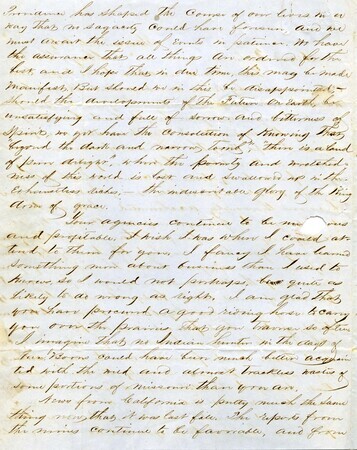 Providence has shaped the Course of our lives in a
way that no sagacity could have foreseen, and we
must await the issue of events in patience. We have
the assurance that all things are ordered for the
best, and I hope that in due time, this may be made
manifest. But should we in this be disappointed,—
should the developements of the Future on Earth, be
unsatisfying and full of sorrow and bitterness of
Spirit, we yet have the Consolation of Knowing that,
beyond the dark and narrow tomb, "there is a land
of pure delight," where the poverty and wretched-
ness of this world is lost and swallowed up in the
exhaustless riches,— the indescribable glory of the King
dom of grace.
Your agencies continue to be numerous
and profitable. I wish I was where I could at
tend to them for you. I fancy I have learned
something more about business than I used to
know, so I would not perhaps, be quite as
likely to do wrong as right. I am glad that
you have procured a good riding horse to carry
you over the prairies that you traverse so often
I imagine that no Indian hunter in the days of
Boone could have been much better acquain
ted with the wild and almost trackless wastes of
some portions of Missouri than you are.
News from California is pretty much the same
thing now, that it was last fall. The reports from
the mines continue to be favorable, and from